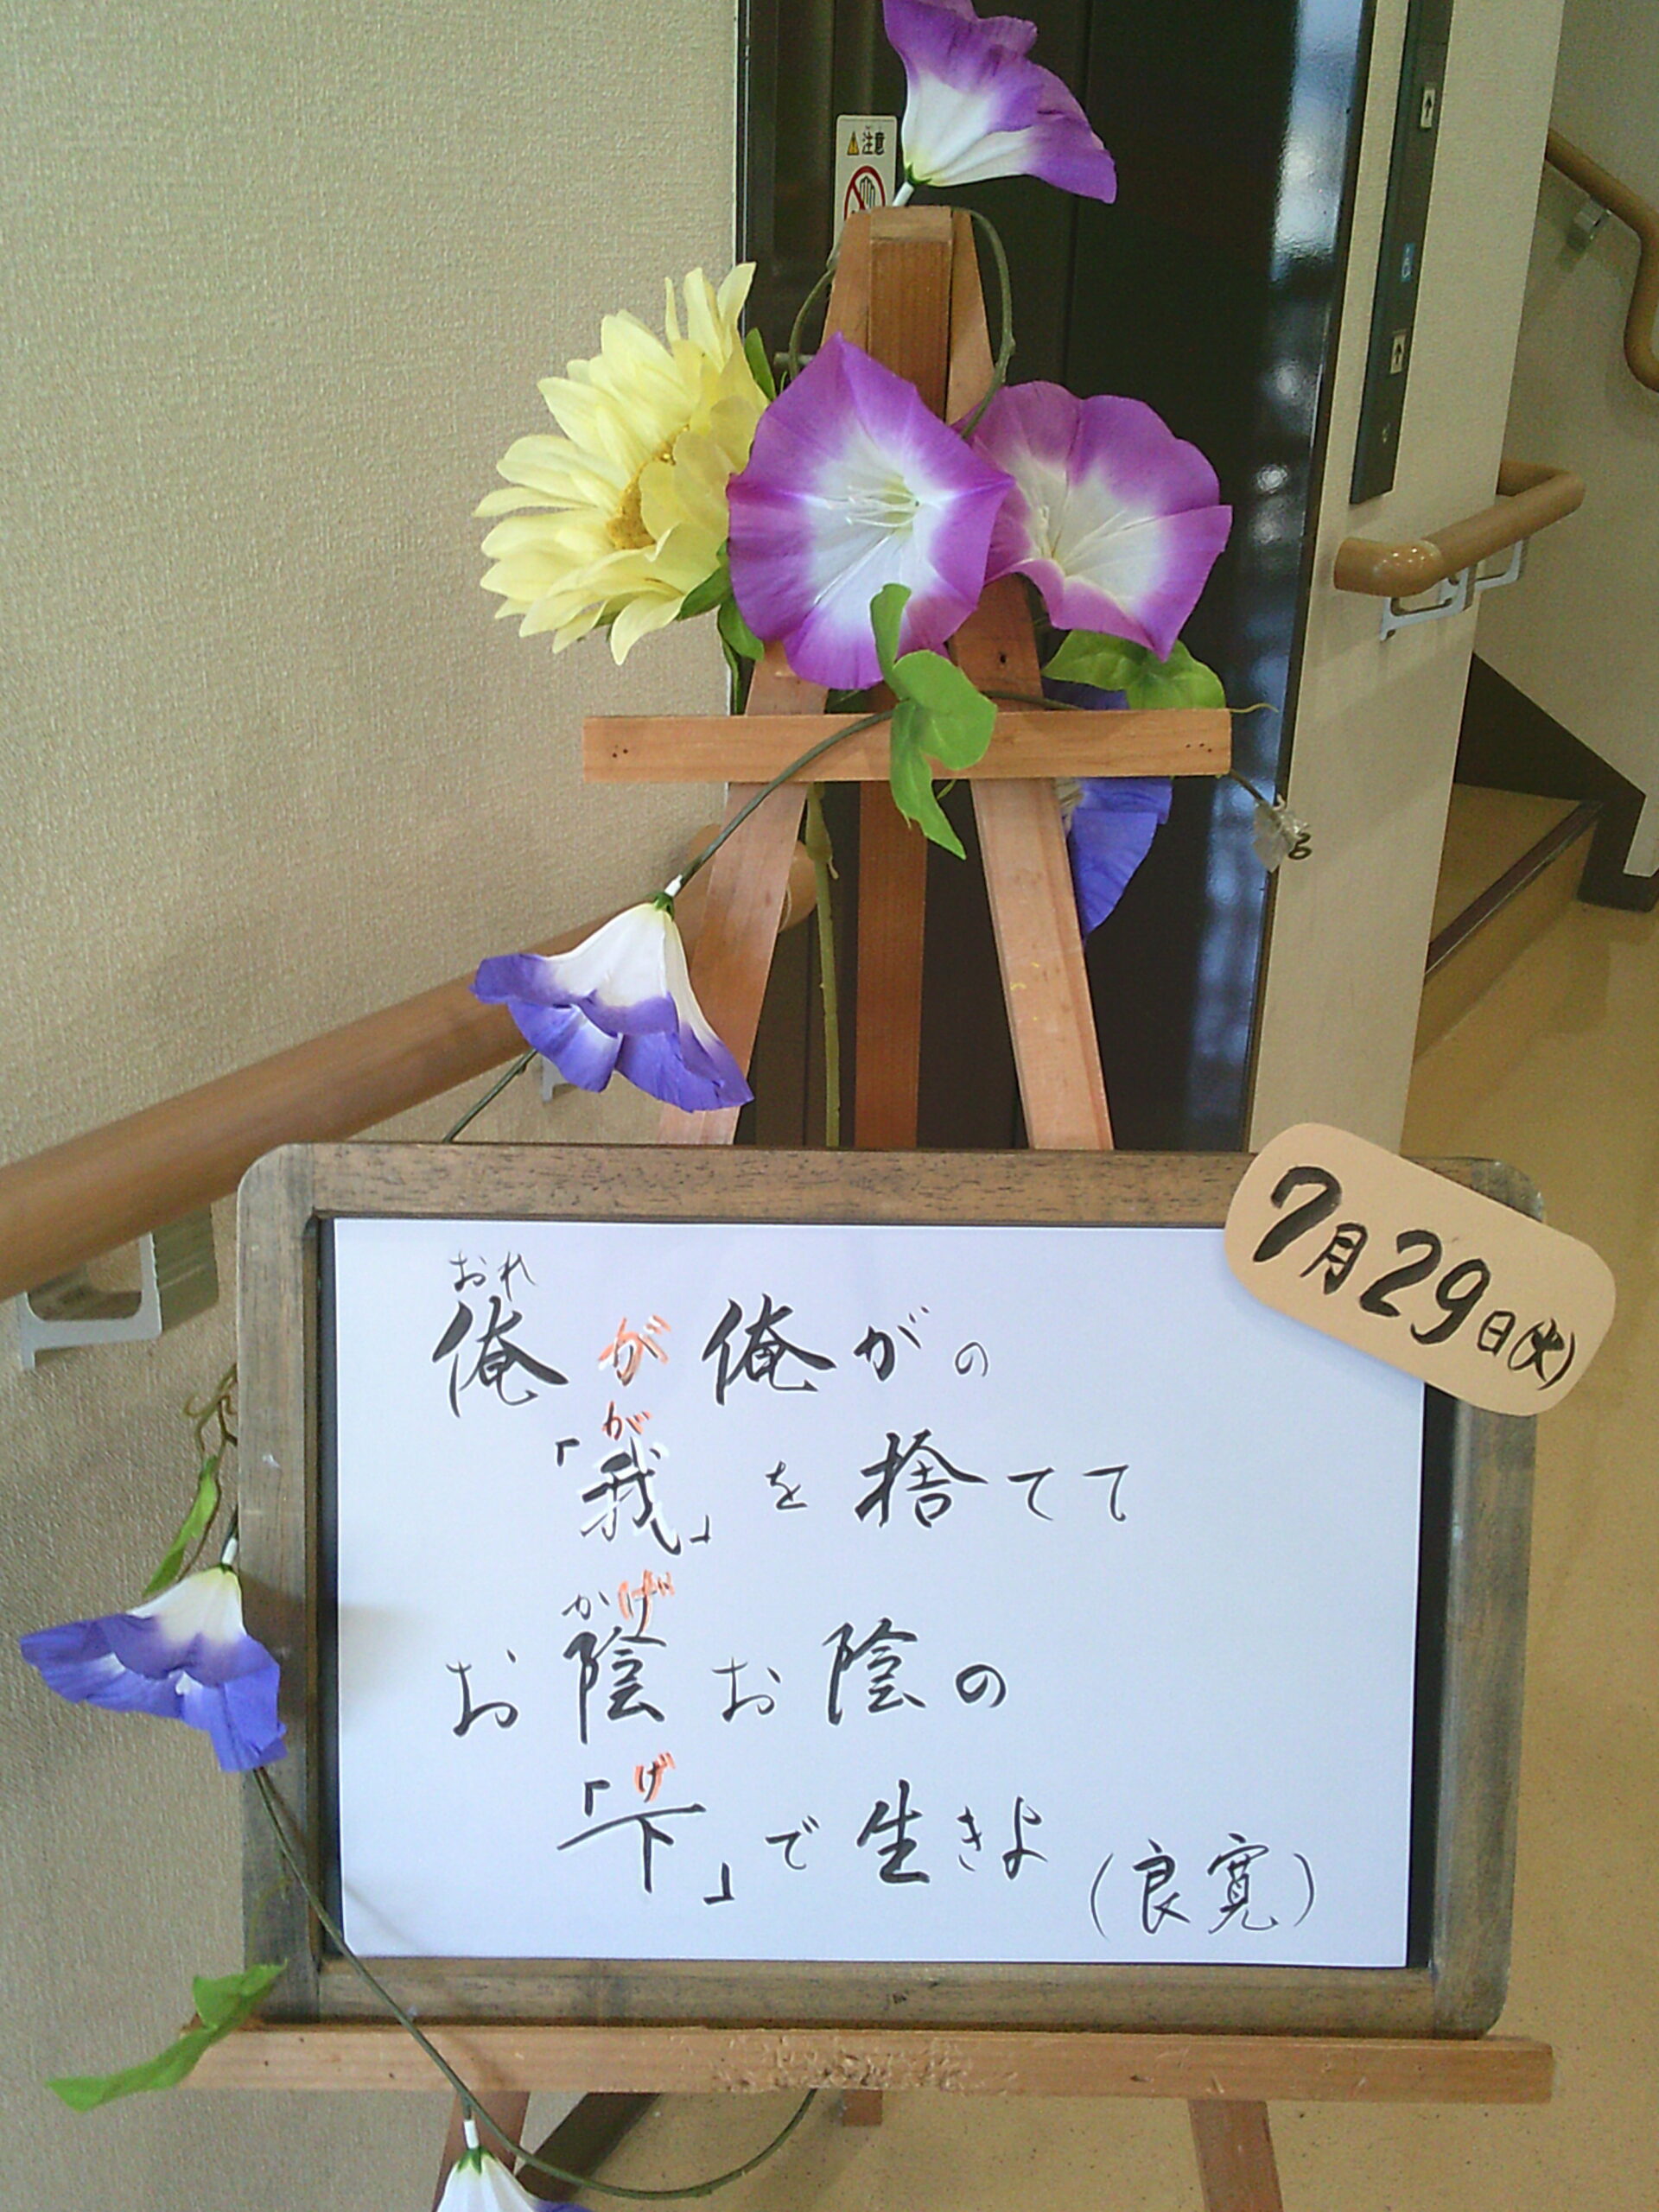 注意
7月29日(火)
おれ
俺が俺がの
が
「我」を捨てて
かげ
お陰お陰の
げ
「下」で生きよ
(良寛)